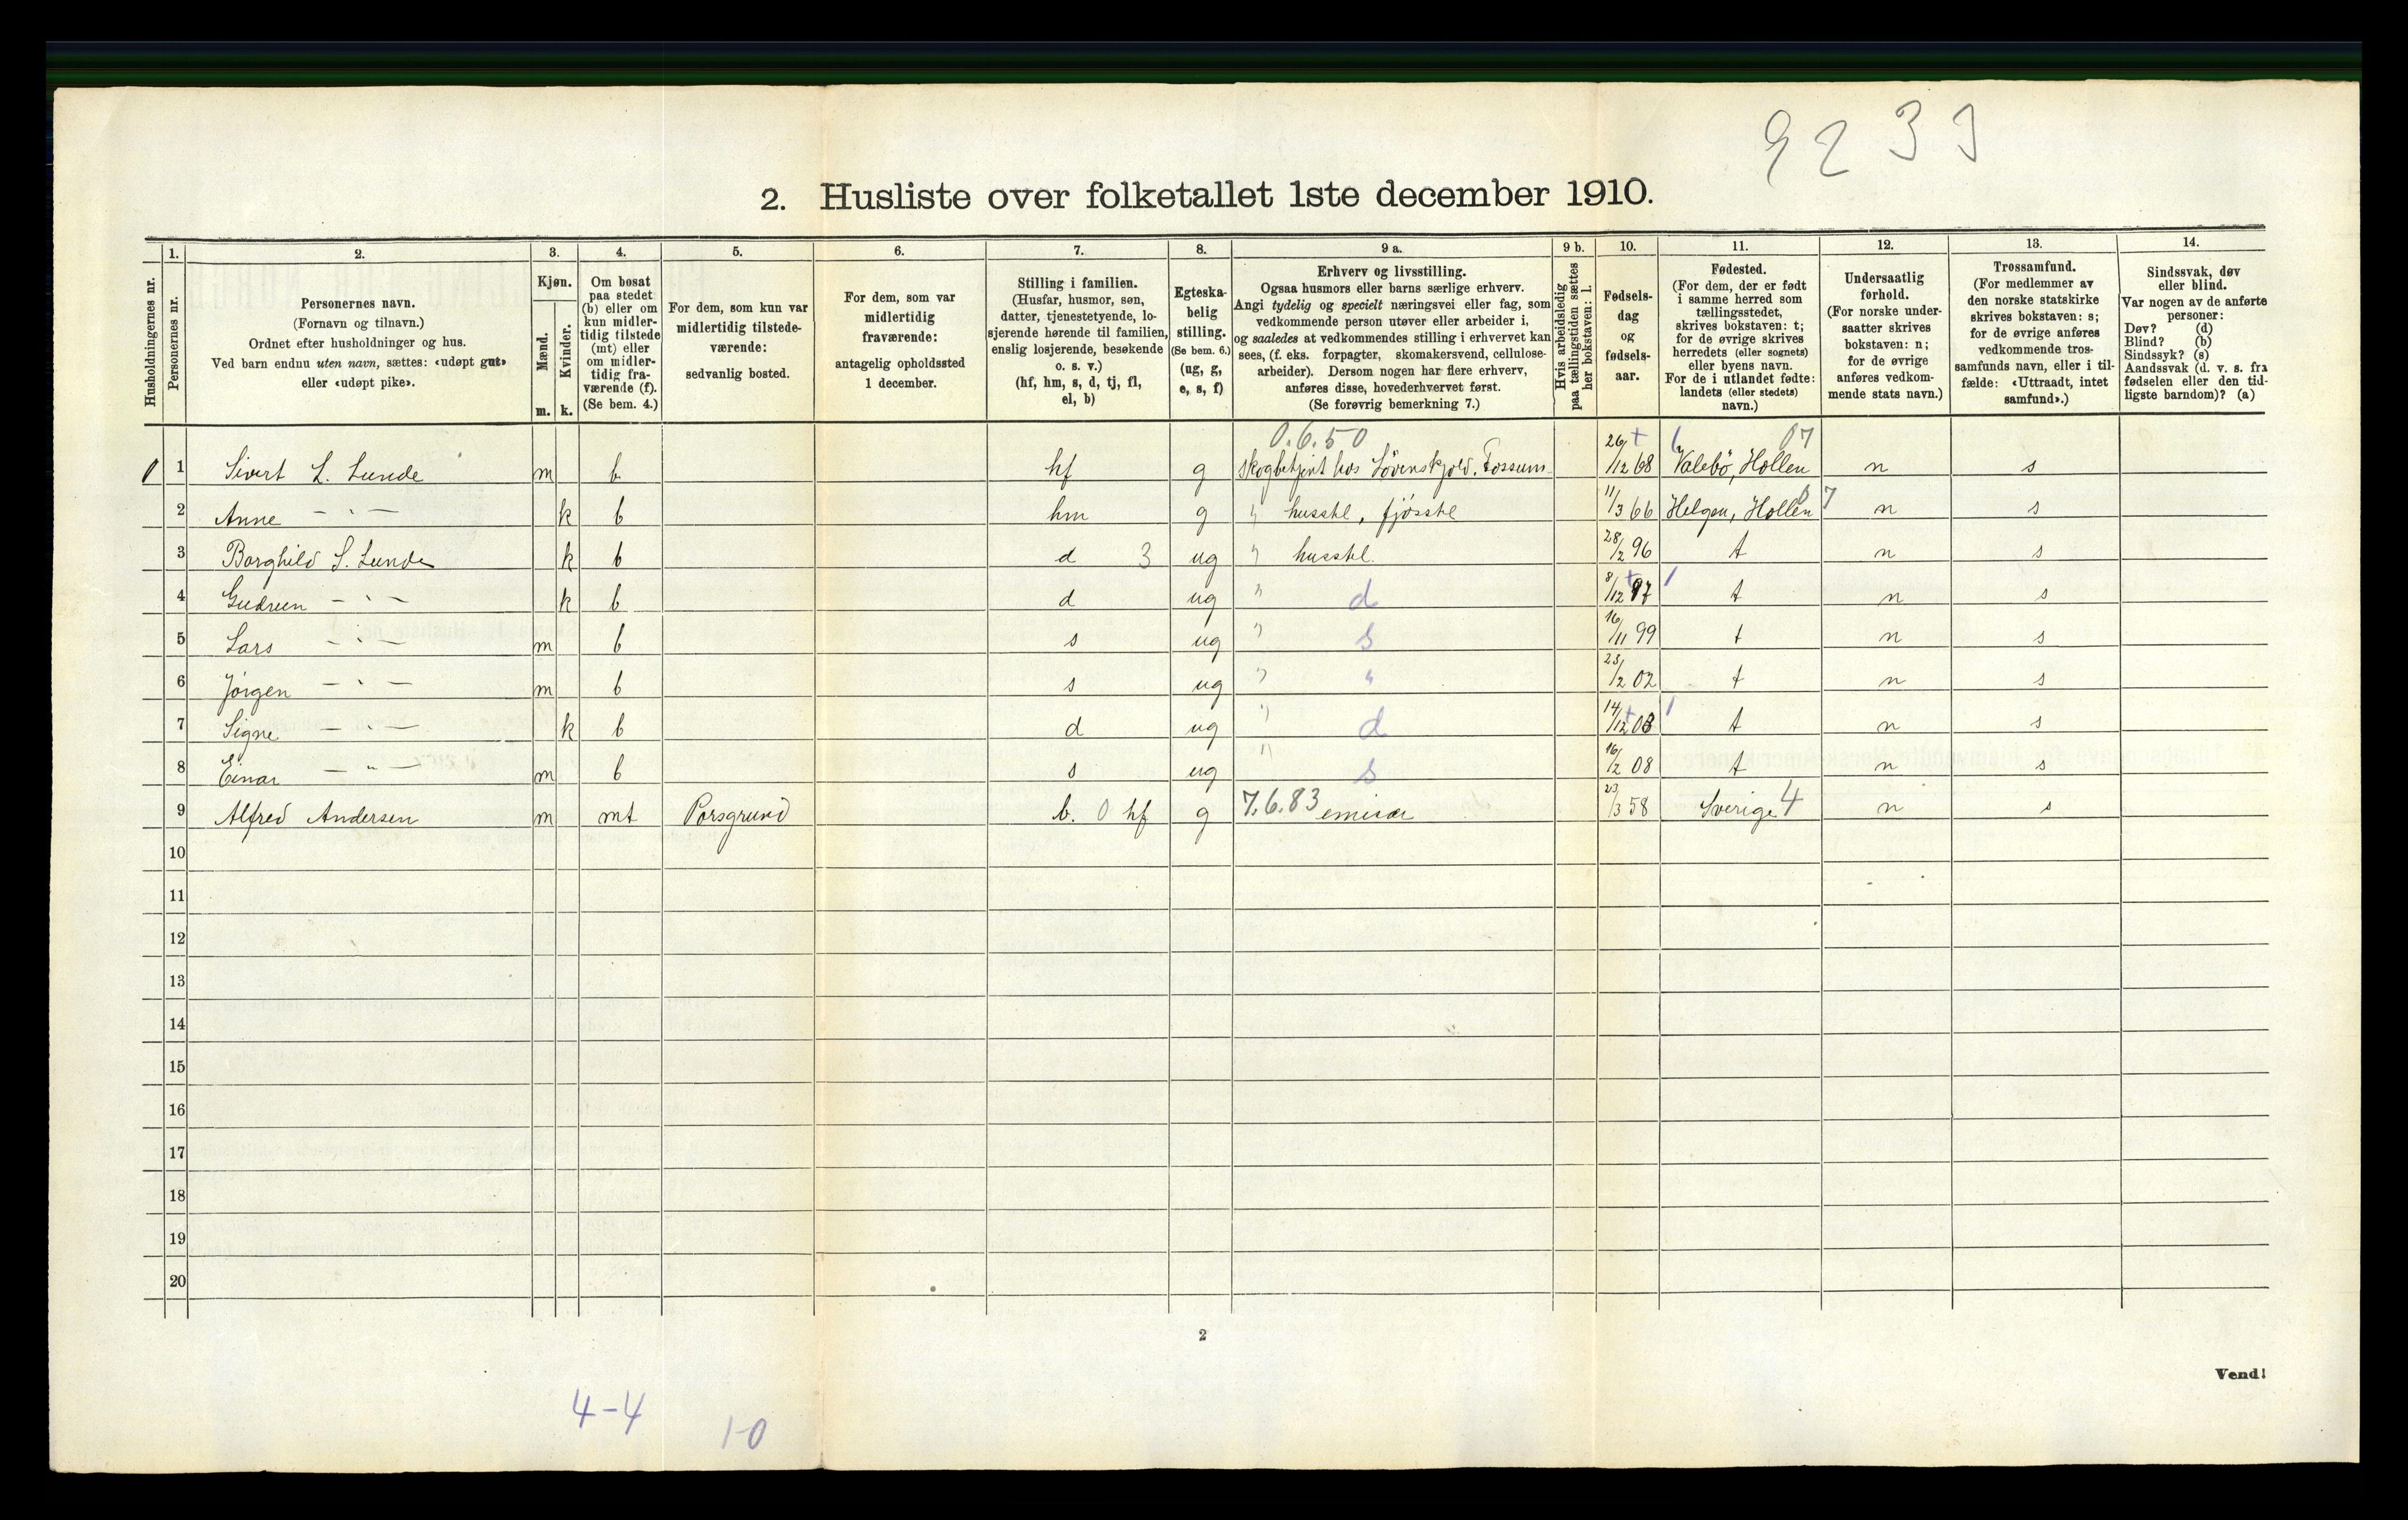 9233
2. Husliste over folketallet 1ste december 1910.
Husholdningernes nr.
1.
Personernes nr.
2.
Personernes navn.
(Fornavn og tilnavn.)
Ordnet efter husholdninger og hus.
Ved barn endnu uten navn, sættes: «udøpt gut»
eller «udøpt pike».
3.
Kjøn.
Mænd.
Kvinder.
m. k.
4.
Om bosat
paa stedet
(b) eller om
kun midler-
tidig tilstede
(mt) eller
om midler-
tidig fra-
værende (f).
(Se bem. 4.)
5.
For dem, som kun var
midlertidig tilstede-
værende:
sedvanlig bosted.
6.
For dem, som var
midlertidig
fraværende:
antagelig opholdssted
1 december.
7.
Stilling i familien.
(Husfar, husmor, søn,
datter, tjenestetyende, lo-
sjerende hørende til familien,
enslig losjerende, besøkende
o. s. v.)
(hf, hm, s, d, tj, fl,
el, b)
8.
Egteska-
belig
stilling.
(Se bem. 6.)
(ug, g,
e, s, f)
9 a.
Erhverv og livsstilling.
Ogsaa husmors eller barns særlige erhverv.
Angi tydelig og specielt næringsvei eller fag, som
vedkommende person utøver eller arbeider i,
og saaledes at vedkommendes stilling i erhvervet kan
sees, (f. eks. forpagter, skomakersvend, cellulose-
arbeider). Dersom nogen har flere erhverv,
anføres disse, hovederhvervet først.
(Se forøvrig bemerkning 7.)
9 b.
Hvis arbeidsledig
paa tællingstiden sættes
her bokstaven: l.
10.
Fødsels-
dag
og
fødsels-
aar.
11.
Fødested.
(For dem, der er født
i samme herred som
tællingsstedet,
skrives bokstaven: t;
for de øvrige skrives
herredets (eller sognets)
eller byens navn.
For de i utlandet fødte:
landets (eller stedets)
navn.)
12.
Undersaatlig
forhold.
(For norske under-
saatter skrives
bokstaven: n;
for de øvrige
anføres vedkom-
mende stats navn.)
13.
Trossamfund.
(For medlemmer av
den norske statskirke
skrives bokstaven: s;
for de øvrige anføres
vedkommende tros-
samfunds navn, eller i til-
fælde: «Uttraadt, intet
samfund».)
14.
Sindssvak, døv
eller blind.
Var nogen av de anførte
personer:
Døv? (d)
Blind? (b)
Sindssyk? (s)
Aandssvak (d. v. s. fra
fødselen eller den tid-
ligste barndom)? (a)
0.6.50 07
1 Sivert L. Lunde m b hf g skogbetjent hos Løvenskjold, Fossum 26/12 68 Valebø, Hollen n s
2 Anne - " - k b hm g " husstel, fjøsstel 11/3 66 Helgen, Hollen 07 n s
3 Borghild S. Lunde k b d 3 ug " husstel 28/2 96 t n s
4 Gudrun - " - k b d ug " d 8/12 97 t n s
5 Lars - " - m b s ug " s 16/11 99 t n s
6 Jørgen - " - m b s ug " " 23/2 02 t n s
7 Signe - " - k b d ug " d 14/12 03 t n s
8 Einar - " - m b s ug " s 16/2 08 t n s
9 Alfred Andersen m mt Porsgrund b. 0 hf g 7.6.83 emisær 23/3 58 Sverige 4 n s
10
11
12
13
14
15
16
17
18
19
20
2
Vend!
4-4
1-0